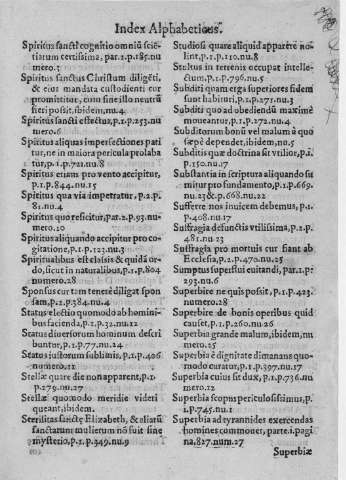 Index Alphabeticus.
Spiritus sancti cognitio omniũ sciẽ-
tiarum certissima, par.1.p.185.nu
mero.3
Spiritus sanctus Christum diligẽti,
& eius mandata custodienti cur
promittitur, cum sine illo neutrũ
fieri possit, ibidem, nu.4
Spiritus sancti effectus, p.1.p.253.nu
mero.6
Spiritus aliquas imperfectiones pati
tur, ne in maiora pericula prolaba
tur, p.1.p.721.nu.8
Spiritus etiam pro vento accipitur,
p.1.p.844.nu.15
Spiritus qua via impetratur, p.2.p.
81.nu.4
Spiritus quo reficitur, par.2.p.93.nu-
mero.20
Spiritus aliquando accipitur pro co-
gitatione, p.1.p.123.nu.3
Spiritualibus est clasis & quidã or-
do, sicut in naturalibus, p.1.p.804
numero.28
Sponsus cur tam tenere diligat spon
sam, p.1.p.384.nu.4
Status electio quomodo ab homini-
bus facienda, p.1.p.32.nu.12
Status diuersorum hominum descri
buntur, p.1.p.77.nu.14
Status iustorum sublimis, p.1.p.406
numero.12
Stellæ quare die non apparent, p.1.
p.279.nu.27
Stellæ quomodo meridie videri
queant, ibidem.
Sterilitas sanctę Elizabeth, & aliarũ
sanctarum mulierum nõ fuit sine
mysterio, p.1.p.349.nu.9
Studiosi quare aliquid apparere no-
lint, p.1.p.110.nu.8
Stultus in terrenis occupat intelle-
ctum, p.1.p.796.nu.5
Subditi quam erga superiores fidem
sunt habituri, p.1.p.271.nu.3
Subditi quo ad obediendũ maximè
moueantur, p.1.p.272.nu.4
Subditorum bonũ vel malum à quo
sæpè dependet, ibidem, nu.5
Subditis quæ doctrina sit vtilior, p.1.
p.150.nu.17
Substantia in scriptura aliquando su
mitur pro fundamento, p.1.p.669.
nu.23.& p.668.nu.22
Sufferre nos inuicem debemus, p.1.
p.408.nu.17
Suffragia defunctis vtilissima, p.2.p.
481.nu.23
Suffragia pro mortuis cur fiant ab
Ecclesia, p.2.p.470.nu.25
Sumptus superflui euitandi, par.1.p.
293.nu.6
Superbire ne quis possit, p.1.p.423.
numero.28
Superbire de bonis operibus quid
causet, p.1.p.260.nu.26
Superbia grande malum, ibidem, nu
mero.25
Superbia è dignitate dimanans quo-
modo curatur, p.1.p.397.nu.17
Superbia cuius sit dux, p.1.p.736.nu
mero.12
Superbia scopus periculosissimus, p.
1.p.745.nu.1
Superbia ad tyrannides exercendas
homines commouet, parte.1.pagi
na,827.num.27
Superbiæ